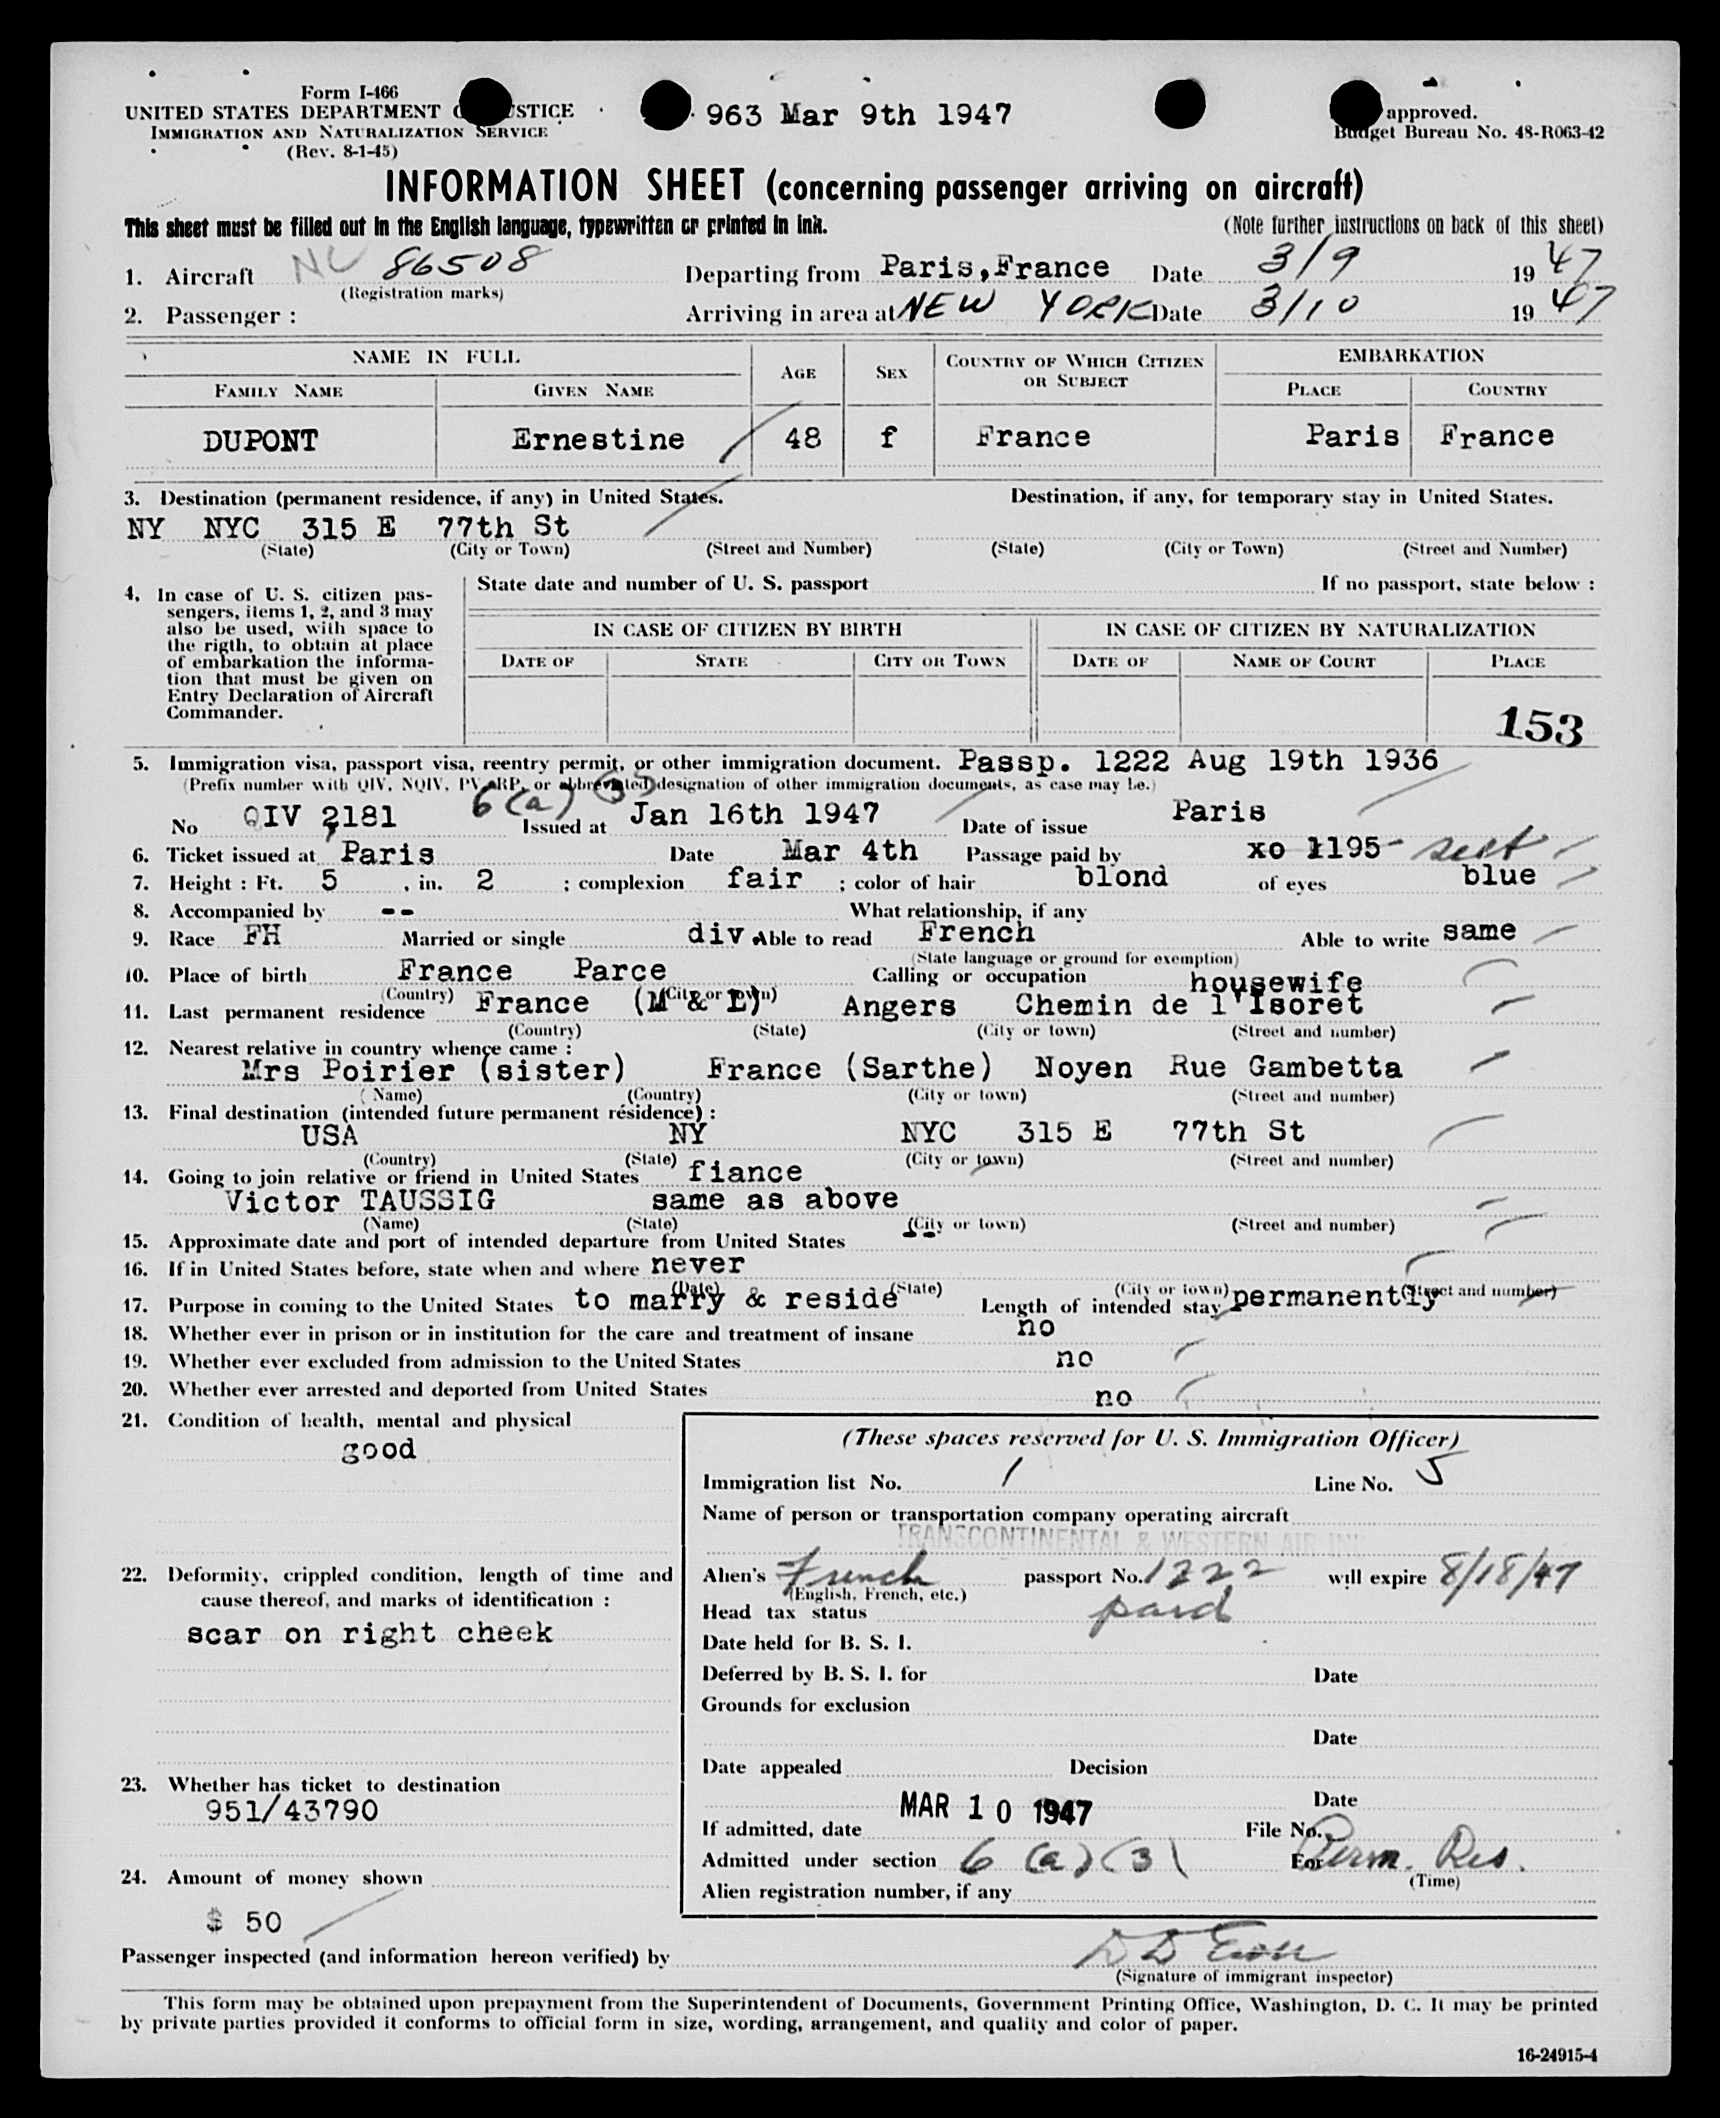 Form I-466
UNITED STATES DEPARTMENT O STICE
963 Mar 9th 1947
approved.
IMMIGRATION AND NATURALIZATION SERVICE
Budget Bureau No. 48-R063-42
(Rev. 8-1-45)
INFORMATION SHEET (concerning passenger arriving on aircraft)
This sheet must be filled out in the English language, typewritten or printed in ink. (Note further instructions on back of this sheet)
1. Aircraft NC 86508 Departing from Paris,France Date 3/9 19 47
(Registration marks)
2. Passenger : Arriving in area at NEW YORK Date 3/10 19 47
NAME IN FULL AGE SEX COUNTRY OF WHICH CITIZEN OR SUBJECT EMBARKATION
FAMILY NAME GIVEN NAME PLACE COUNTRY
DUPONT Ernestine 48 f France Paris France
3. Destination (permanent residence, if any) in United States. Destination, if any, for temporary stay in United States.
NY NYC 315 E 77th St
(State) (City or Town) (Street and Number) (State) (City or Town) (Street and Number)
4, In case of U. S. citizen pas-
sengers, items 1, 2, and 3 may
also be used, with space to
the rigth, to obtain at place
of embarkation the informa-
tion that must be given on
Entry Declaration of Aircraft
Commander.
State date and number of U. S. passport If no passport, state below :
IN CASE OF CITIZEN BY BIRTH IN CASE OF CITIZEN BY NATURALIZATION
DATE OF STATE CITY OR TOWN DATE OF NAME OF COURT PLACE
153
5. Immigration visa, passport visa, reentry permit, or other immigration document. Passp. 1222 Aug 19th 1936
(Prefix number with QIV, NQIV, PV, RP, or abbreviated designation of other immigration documents, as case may be.)
6(a)(3)
No QIV 2181 Issued at Jan 16th 1947 Date of issue Paris
6. Ticket issued at Paris Date Mar 4th Passage paid by xo 1195-
7. Height : Ft. 5 , in. 2 ; complexion fair ; color of hair blond of eyes blue
8. Accompanied by -- What relationship, if any
9. Race FH Married or single div. Able to read French Able to write same
(State language or ground for exemption)
10. Place of birth France Parce Calling or occupation housewife
(Country) (City or town)
11. Last permanent residence France (M & L) Angers Chemin de l'Isoret
(Country) (State) (City or town) (Street and number)
12. Nearest relative in country whence came :
Mrs Poirier (sister) France (Sarthe) Noyen Rue Gambetta
(Name) (Country) (City or town) (Street and number)
13. Final destination (intended future permanent résidence) :
USA NY NYC 315 E 77th St
(Country) (State) (City or town) (Street and number)
14. Going to join relative or friend in United States fiance
Victor TAUSSIG same as above
(Name) (State) (City or town) (Street and number)
15. Approximate date and port of intended departure from United States --
16. If in United States before, state when and where never
(Date) (State) (City or town) (Street and number)
17. Purpose in coming to the United States to marry & reside Length of intended stay permanently
18. Whether ever in prison or in institution for the care and treatment of insane no
19. Whether ever excluded from admission to the United States no
20. Whether ever arrested and deported from United States no
21. Condition of health, mental and physical
good
(These spaces reserved for U. S. Immigration Officer)
Immigration list No. 1 Line No. 5
Name of person or transportation company operating aircraft
TRANSCONTINENTAL & WESTERN AIR INC
22. Deformity, crippled condition, length of time and
cause thereof, and marks of identification :
scar on right cheek
Alien's French passport No. 1222 will expire 8/18/47
(English, French, etc.)
Head tax status paid
Date held for B. S. I.
Deferred by B. S. I. for Date
Grounds for exclusion
Date
23. Whether has ticket to destination
951/43790
Date appealed Decision
Date
MAR 10 1947
If admitted, date File No.
Admitted under section 6 (a) (3) For Perm. Res.
(Time)
24. Amount of money shown
$ 50
Alien registration number, if any
Passenger inspected (and information hereon verified) by
(Signature of immigrant inspector)
This form may be obtained upon prepayment from the Superintendent of Documents, Government Printing Office, Washington, D. C. It may be printed
by private parties provided it conforms to official form in size, wording, arrangement, and quality and color of paper.
16-24915-4